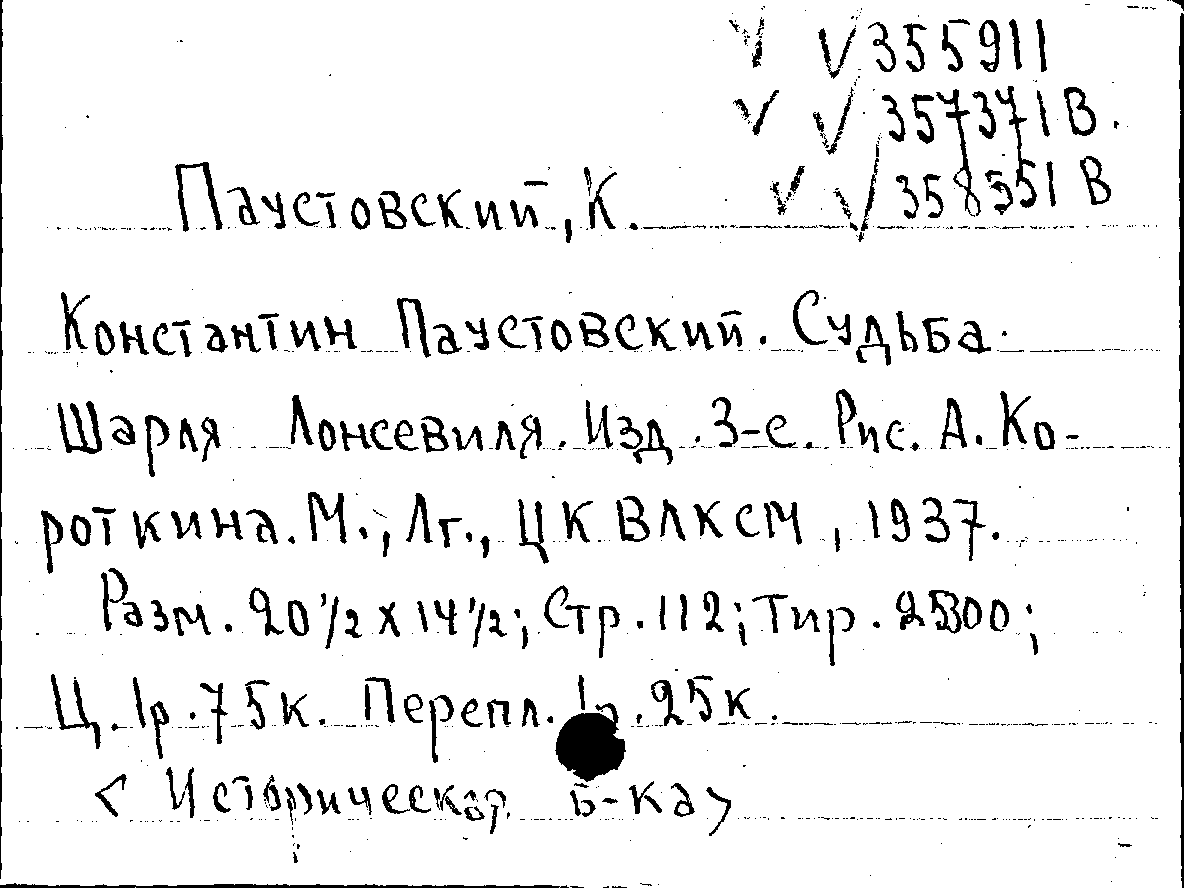 355911
357371 В.
358551 В
Паустовский, К.
Константин Паустовский. Судьба
Шарля Лонсевиля. Изд. 3-е. Рис. А. Ко-
роткина. М., Лг., ЦК ВЛКСМ, 1937.
Разм. 20 1/2 х 14 1/2; Стр. 112; Тир.
Ц. 1р. 75к. Перепл. 1р. 25к.
< Историческая б-ка >